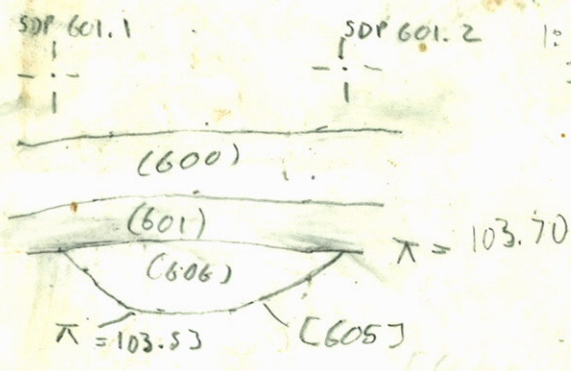 SDP 601.1
SDP 601.2
1:
(600)
(601)
(606)
⊼ = 103.70
⊼ = 103.53
[605]